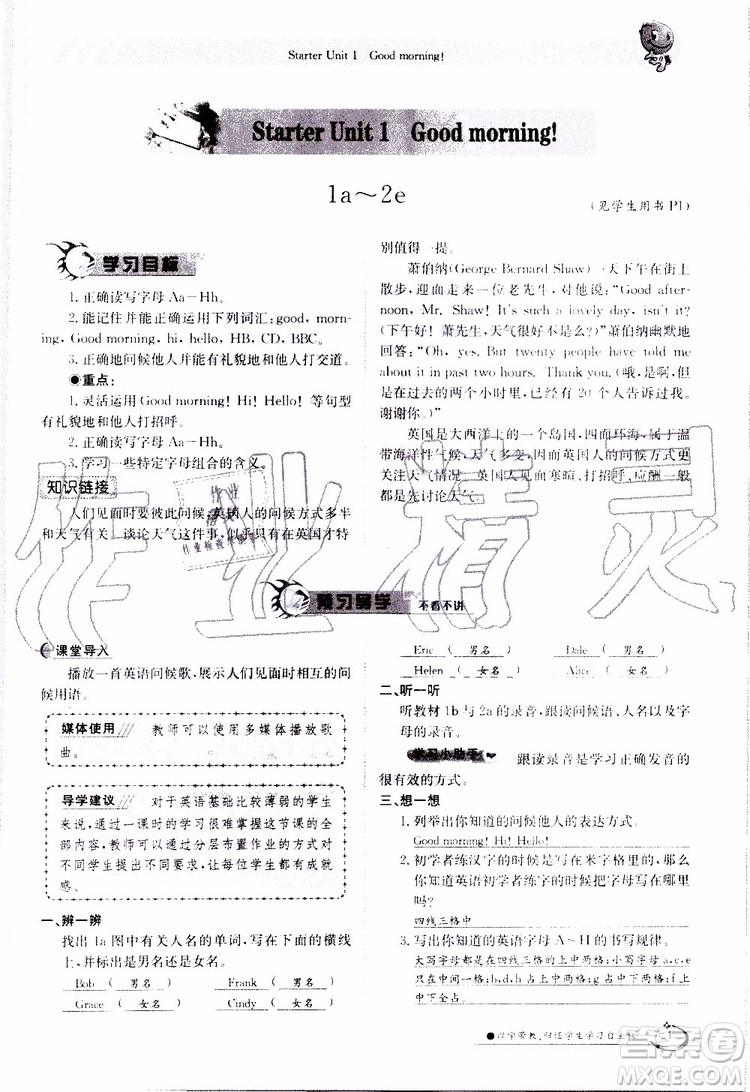 Starter Unit 1 Good morning!
Starter Unit 1 Good morning!
1a～2e
(见学生用书 P1)
学习目标
1. 正确读写字母 Aa－Hh。
2. 能记住并能正确运用下列词汇:good, morn-
ing, Good morning, hi, hello, HB, CD, BBC。
3. 正确地问候他人并能有礼貌地和他人打交道。
●重点:
1. 灵活运用 Good morning! Hi! Hello! 等句型
有礼貌地和他人打招呼。
2. 正确读写字母 Aa－Hh。
3. 学习一些特定字母组合的含义。
知识链接
人们见面时要彼此问候,英国人的问候方式多半
和天气有关。谈论天气这件事,似乎只有在英国才特
别值得一提。
萧伯纳(George Bernard Shaw)一天下午在街上
散步,迎面来了一位老先生,对他说:“Good after-
noon, Mr. Shaw! It's such a lovely day, isn't it?
(下午好! 萧先生,天气很好不是吗?)萧伯纳幽默地
回答:“Oh, yes. But twenty people have told me
about it in past two hours. Thank you.(哦,是啊。
在过去的两个小时里,已经有 20 个人告诉过我。
谢谢你。)”
英国是大西洋上的一个岛国,四面环海,属于温
带海洋性气候,天气变化大,因此英国人的问候方式更
关注天气情况。英国人见面寒暄、打招呼、应酬一般
都是先讨论天气。
预习导学 不看不讲
课堂导入
播放一首英语问候歌,展示人们见面时相互的问
候用语。
媒体使用 教师可以使用多媒体播放歌
曲。
导学建议 对于英语基础比较薄弱的学生
来说,通过一课时的学习很难掌握这节课的全
部内容,教师可以通过分层布置作业的方式对
不同学生提出要求,让每位学生都有成就
感。
一、辨一辨
找出 1a 图中有关人名的单词,写在下面的横线
上,并标出是男名还是女名。
Bob (男名) Frank (男名)
Grace (女名) Cindy (女名)
Eric (男名) Dale (男名)
Helen (女名) Alice (女名)
二、听一听
听教材 1b 与 2a 的录音,跟读问候语、人名以及字
母的录音。
学习小助手 跟读录音是学习正确发音的
很有效的方式。
三、想一想
1. 列举出你知道的问候他人的表达方式。
Good morning! Hi! Hello!
2. 初学者练汉字的时候是写在米字格里的,那么
你知道英语初学者练字的时候把字母写在哪里
吗?
四线三格中
3. 写出你知道的英语字母 A～H 的书写规律。
大写字母都是占四线三格的上中格;小写字母 a、c、e
只在中间一格;b、d、h 占上中两格;g 占中下两格;f 占
上中下全占。
作业精灵
作业
精灵
作业检查小帮手
●以学带教,归还学生学习自主权
1
答案圈
MXQE.COM